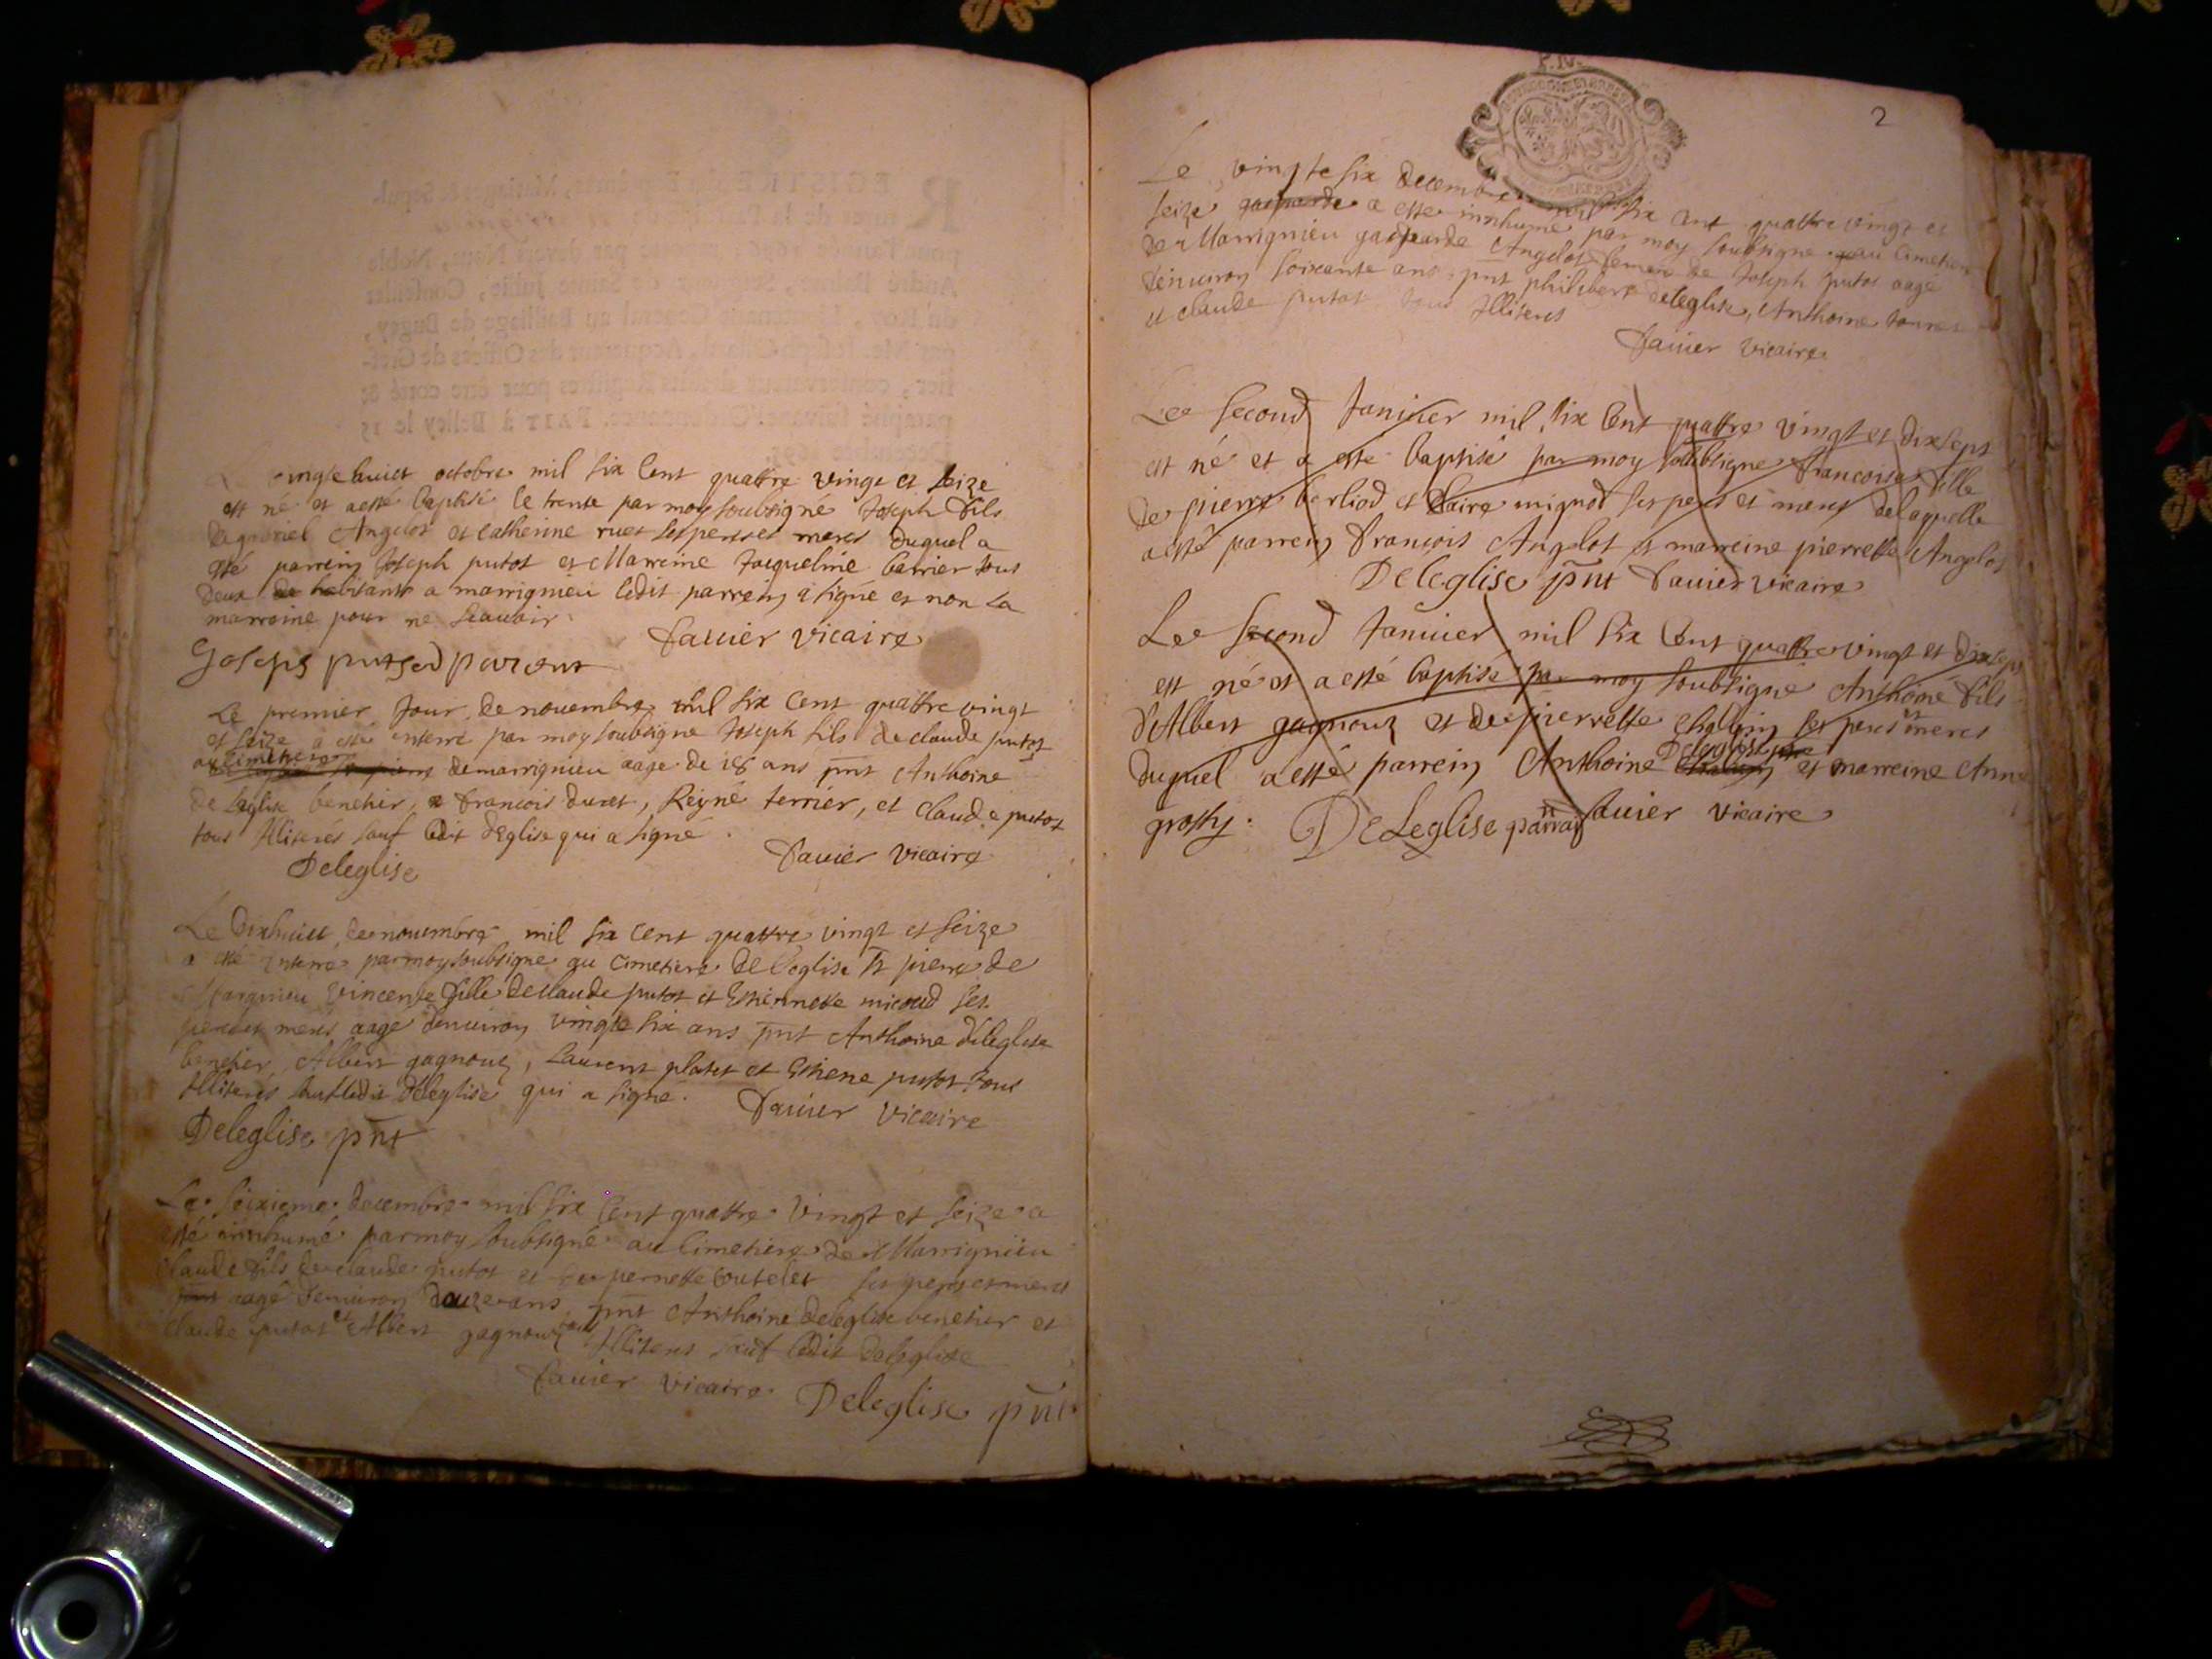 vingte huict octobre mil six cent quattre vingt et seize
est né et a esté baptisé le trente par moy soubsigné Joseph fils
de gabriel Angelot et catherine ruet ses peres et meres duquel a
esté parrein Joseph putot et Marreine Jacqueline barrier tous
deux habitants a marrignieu ledit parrein a signé et non la
marreine pour ne scauoir
fauier vicaire
Joseph
Le premier Jour de nouembre mil six cent quattre vingt
et seize a esté enterré par moy soubsigné Joseph fils de claude putot
au cimetiere de marrignieu aage de 18 ans pnt Anthoine
de leglise benetier, francois duret, Reyné terrier, et claude putot
tous Illiterés sauf ledit deglise qui a signé
Deleglise fauier vicaire
Le dixhuict de nouembre mil six cent quattre vingt et seize
a esté enterré par moy soubsigne au cimetiere de leglise St pierre de
Marignieu vincente fille de claude putot et Estiennette micoud ses
peres et meres aage denuiron vingte six ans pnt Anthoine deleglise
benetier, Albert gagnoux, Laurent platet et Estiene putot tous
Illiteres sauf ledit deleglise qui a signé. fauier vicaire
Deleglise pnt
Le seixieme decembre mil six cent quattre vingt et seize a
esté innhumé par moy soubsigné au cimetiere de Marrignieu
claude fils de claude putot et de pernette coutelet ses peres et meres
aagé denuiron douze ans pnt Anthoine deleglise benetier et
claude putot et Albert gagnoux tous Illiteres sauf ledit deleglise
fauier vicaire Deleglise pnt
2
Le vingte six decembre mil six cent quattre vingt et
seize gasparde a esté innhumé par moy soubsigné au cimetiere
de Marrignieu gasparde Angelot femme de Joseph putot aagé
denuiron soixante ans pnt philibert deleglise, Anthoine
et claude putot tous Illiteres
fauier vicaire
Le second Januier mil six cent quattre vingt et dixsept
est né et a esté baptisé par moy soubsigne francoise fille
de pierre berliod et Claire mignot ses peres et meres de laquelle
a esté parrein francois Angelot et marreine pierrette Angelot
Deleglise pnt fauier vicaire
Le second Januier mil six cent quattre vingt et dixsept
est né et a esté baptisé par moy soubsigné Anthoine fils
d'Albert gagnoux et de pierrette challein ses peres et meres
duquel a esté parrein Anthoine Deleglise et marreine Anne
grossy. DeLeglise parrain fauier vicaire